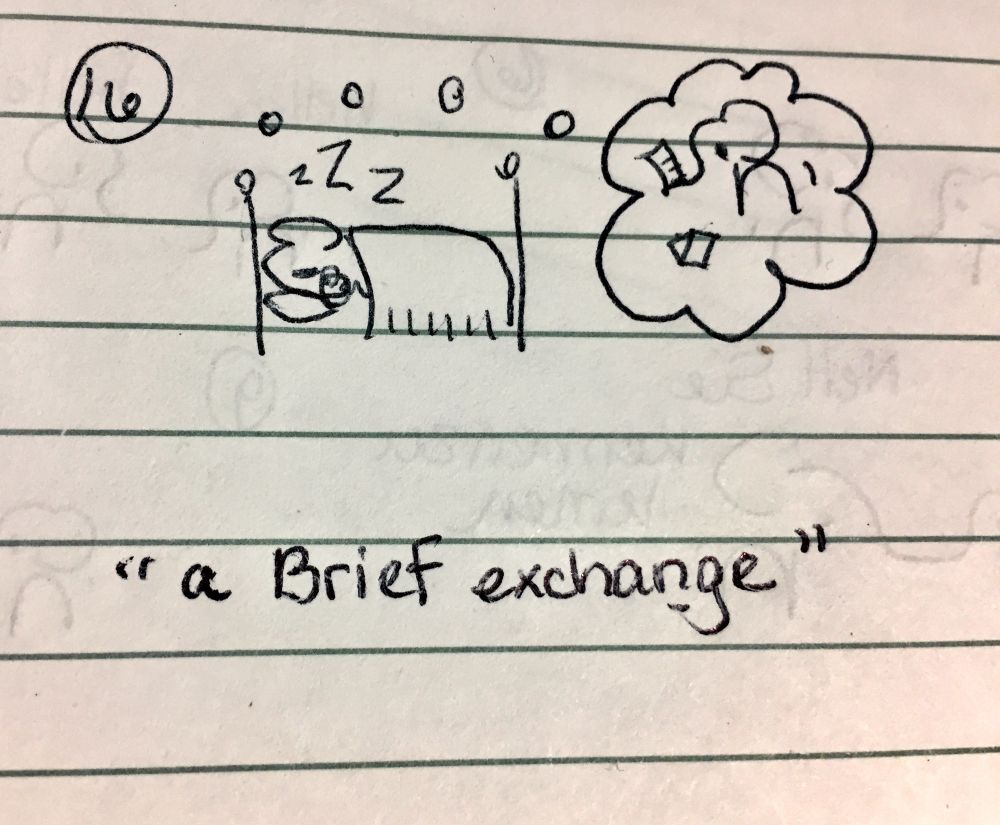 16
zZz
"a Brief exchange"